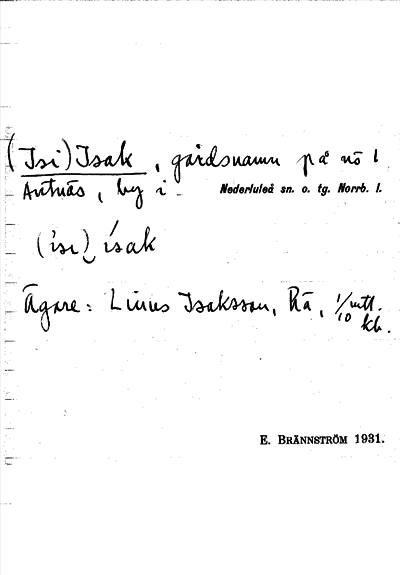 (Isi) Isak, gårdsnamn på nö 1
Antnäs, by i Nederluleå sn. o. tg. Norrb. l.
(ísı)‿ísak
Ägare: Linus Isaksson, Rå, 1/10 mtl.
kb.
E. BRÄNNSTRÖM 1931.